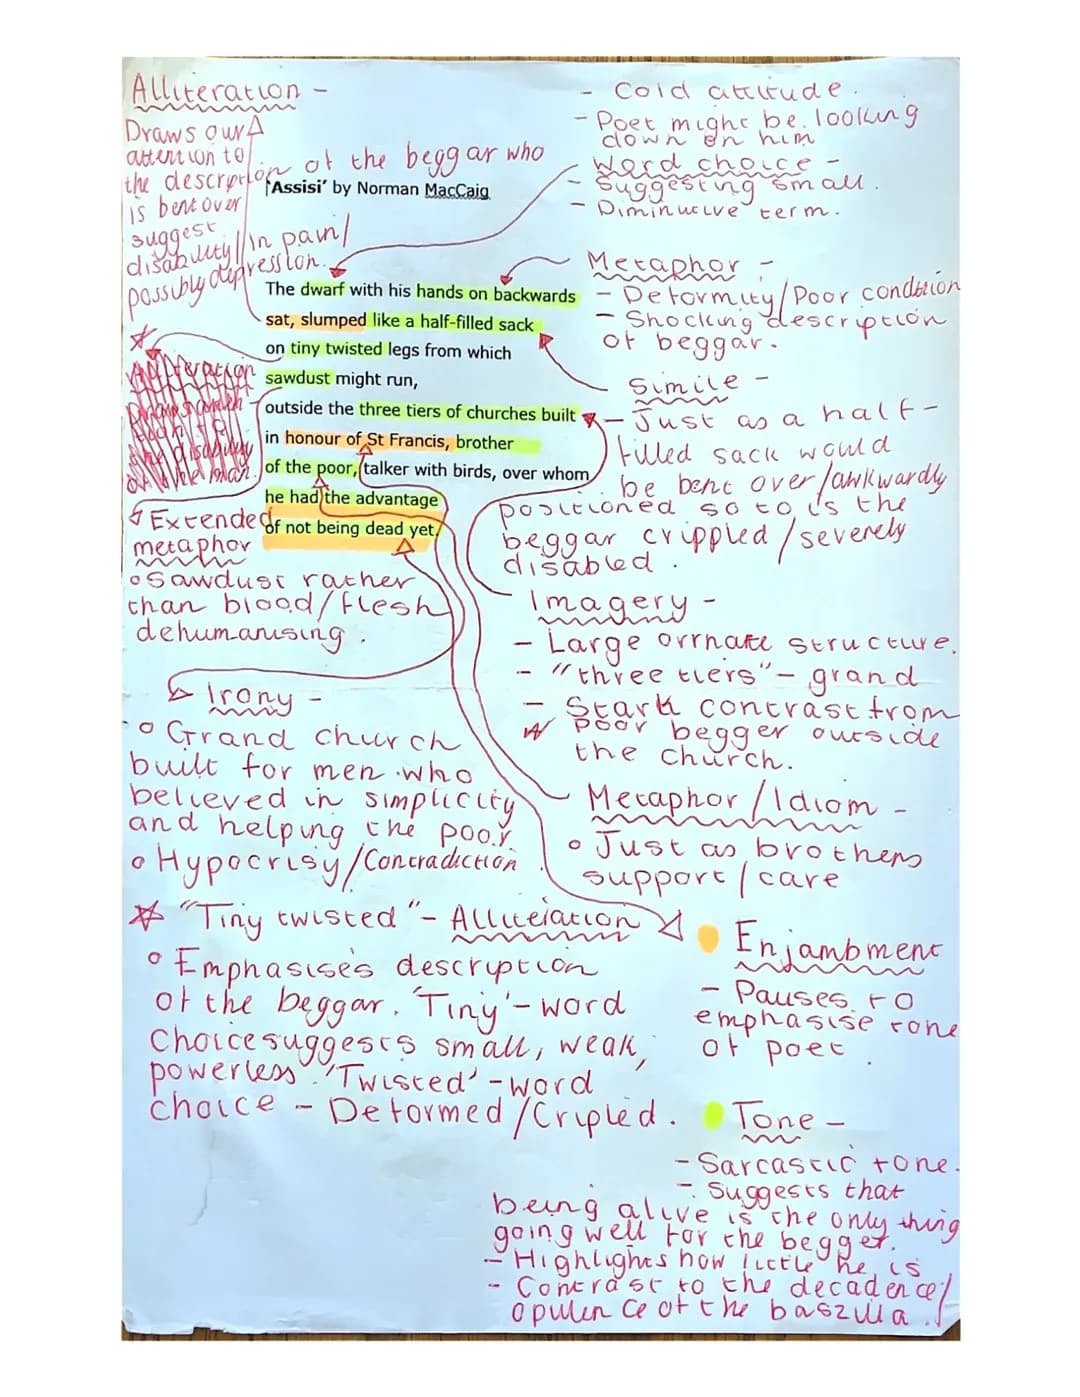 Alliteration -
Draws our
attention to
the description of the beggar who
is bent over
suggest
disability/in pain/
possibly depression.
- Cold attitude.
- Poet might be looking
down on him
Word choice -
- Suggesting small.
- Diminutive term.
'Assisi' by Norman MacCaig
The dwarf with his hands on backwards
sat, slumped like a half-filled sack
on tiny twisted legs from which
sawdust might run,
outside the three tiers of churches built
in honour of St Francis, brother
of the poor, talker with birds, over whom
he had the advantage
of not being dead yet.
Metaphor -
- Deformity/Poor condition
- Shocking description
of beggar.
Simile -
- Just as a half-
filled sack would
be bent over/awkwardly
positioned so to is the
beggar crippled/severely
disabled.
Alliteration
Extended
metaphor
o Sawdust rather
than blood/flesh
dehumanising.
Imagery -
- Large orrnate structure.
- "three tiers" - grand
- Stark contrast from
poor begger outside
the church.
Irony -
o Grand church
built for men who
believed in simplicity
and helping the poor.
o Hypocrisy/Contradiction
Metaphor/Idiom -
o Just as brothers
support/care
"Tiny twisted" - Alliteration
o Emphasises description
of the beggar. 'Tiny' - word
choice suggests small, weak,
powerless. 'Twisted' - word
choice - Deformed/Cripled.
Enjambment
- Pauses to
emphasise tone
of poet.
Tone -
- Sarcastic tone.
- Suggests that
being alive is the only thing
going well for the begger.
- Highlights how little he is
- Contrast to the decadence/
opulence of the baszilla.